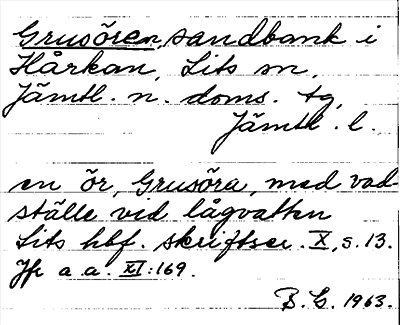 Grusören, sandbank i
Hårkan, Lits sn,
Jämtl. n. doms. tg,
Jämtl. l.
en ör, Grusöra, med vad-
ställe vid lågvatten
Lits hbf. skriftser. X, s. 13.
Jfr a a. XI:169.
B. G. 1963.